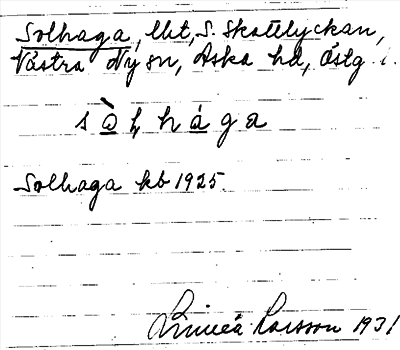 Solhaga, lht, S. Skattlyckan,
Västra Ny sn, Aska hd, Östg.
Solhaga kb 1925.
Linnéa Larsson 1931